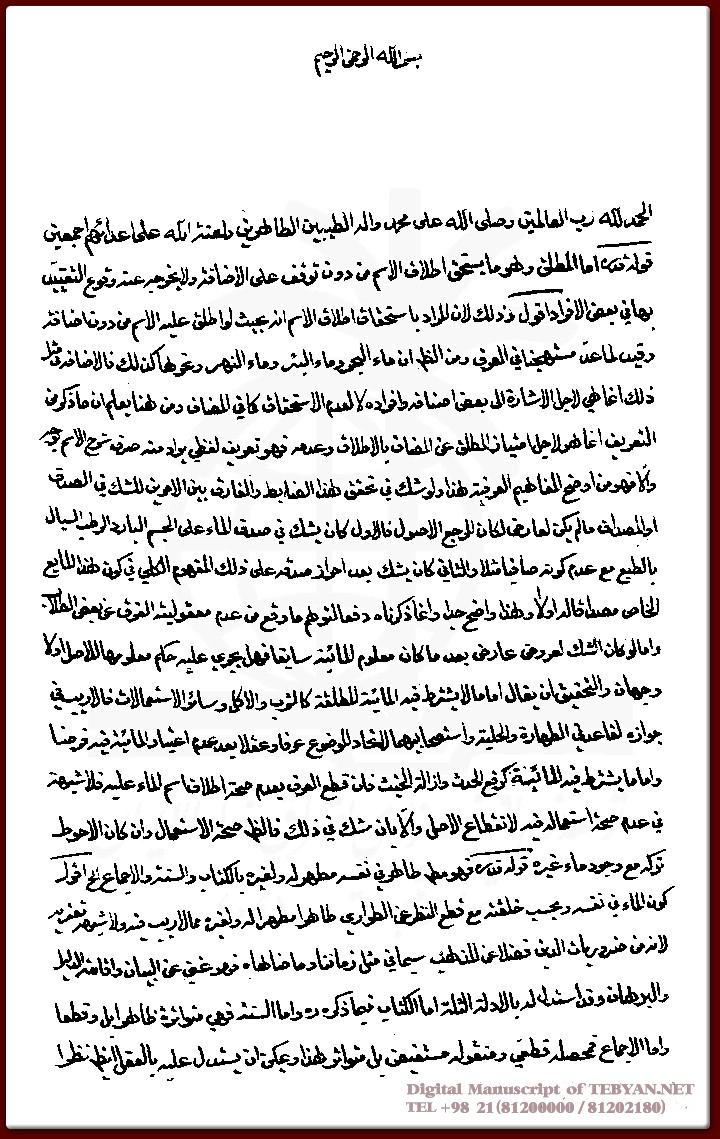 بسم الله الرحمن الرحيم
الحمد لله رب العالمين وصلى الله على محمد واله الطيبين الطاهرين ولعنة الله على اعدائهم اجمعين
قوله قده اما المطلق وهو ما يستحق اطلاق الاسم من دون توقف على الاضافة ولا يخرجه عنه وقوع التقييد
بها في بعض الافراد اقول وذلك لان المراد باستحقاق اطلاق الاسم انه بحيث لو اطلق عليه الاسم من دون اضافة
وقيد لما عد مستهجنا في العرف ومن الظ ان ماء البحر وماء البئر وماء النهر ونحوها كذلك فالاضافة في مثل
ذلك انما هي لاجل الاشارة الى بعض اصنافه وافراده لا لعدم الاستحقاق كما في المضاف ومن هنا يعلم ان ما ذكر من
التعريف انما هو لاجل امتياز المطلق عن المضاف بالاطلاق وعدمه فهو تعريف لفظي يراد منه صرف شرح الاسم
والا فهو من اوضح المفاهيم العرفية هذا ولو شك في تحقق هذا الضابط والفارق بين الامرين للشك في الصدق
او المصداق ما لم يكن لعارض لكان المرجع الاصول فالاول كان يشك في صدق الماء على الجسم البارد الرطب السيال
بالطبع مع عدم كونه صافيا مثلا والثاني كان يشك بعد احراز صدقه على ذلك المفهوم الكلي في كون هذا المايع
الخاص مصداقا له اولا وهذا واضح جدا وانما ذكرناه دفعا لتوهم ما وقع من عدم معقولية الفرق عن بعض الطلاب
واما لو كان الشك لعروض عارض بعد ما كان معلوم المائية سابقا فهل يجري عليه حكم معلومها للاصل اولا
وجهان والتحقيق ان يقال اما ما لا يشترط فيه المائية المطلقة كالشرب والاكل وسائر الاستعمالات فلا ريب في
جوازه لقاعدتي الطهارة والحلية واستصحابهما لاتحاد الموضوع عرفا وعقلا بعد عدم اعتبار المائية فيه فرضا
واما ما يشترط فيه المائية كرفع الحدث وازالة الخبث فان قطع العرف بعدم صحة اطلاق اسم الماء عليه فلا شبهة
في عدم صحة استعماله فيه لانقطاع الاصل والا بان شك في ذلك فالظ صحة الاستعمال وان كان الاحوط
تركه مع وجود ماء غيره قوله قده فهو مط طاهر في نفسه مطهر له ولغيره بالكتاب والسنة والاجماع الخ اقول
كون الماء في نفسه وبحسب خلقته مع قطع النظر عن الطواري طاهرا مطهرا له ولغيره مما لا ريب فيه ولا شبهة تعتريه
لانه من ضروريات الدين فضلا عن المذهب سيما في مثل زماننا وما ضاهاه فهو غني عن البيان واقامة الدليل
والبرهان وقد استدل له بالادلة الثلثة اما الكتاب فيما ذكره ره واما السنة فهي متواترة ظاهرا بل وقطعا
واما الاجماع فمحصله قطعي ومنقوله مستفيض بل متواتر هذا ويمكن ان يستدل عليه بالعقل ايضا نظرا
Digital Manuscript of TEBYAN.NET
TEL +98 21 (81200000 / 81202180)